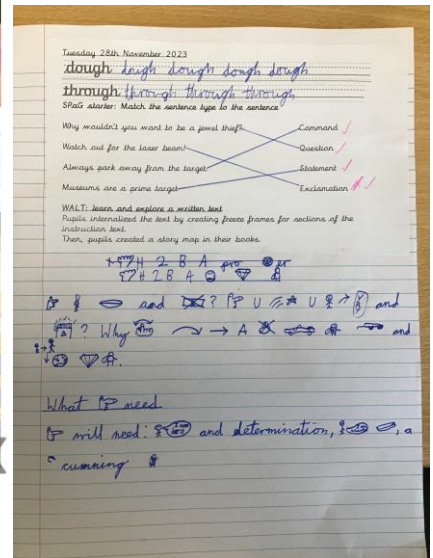 Tuesday 28th November 2023
dough dough dough dough dough
through through through through
SPaG starter: Match the sentence type to the sentence
Why wouldn't you want to be a jewel thief? Command
Watch out for the laser beam! Question
Always park away from the target. Statement
Museums are a prime target. Exclamation
WALT: learn and explore a written text
Pupils internalized the text by creating freeze frames for sections of the
instruction text.
Then, pupils created a story map in their books.
H 2 B A pro er
H 2 B A
and ? U U and
? Why A and
What need
will need: and determination, , a
cunning